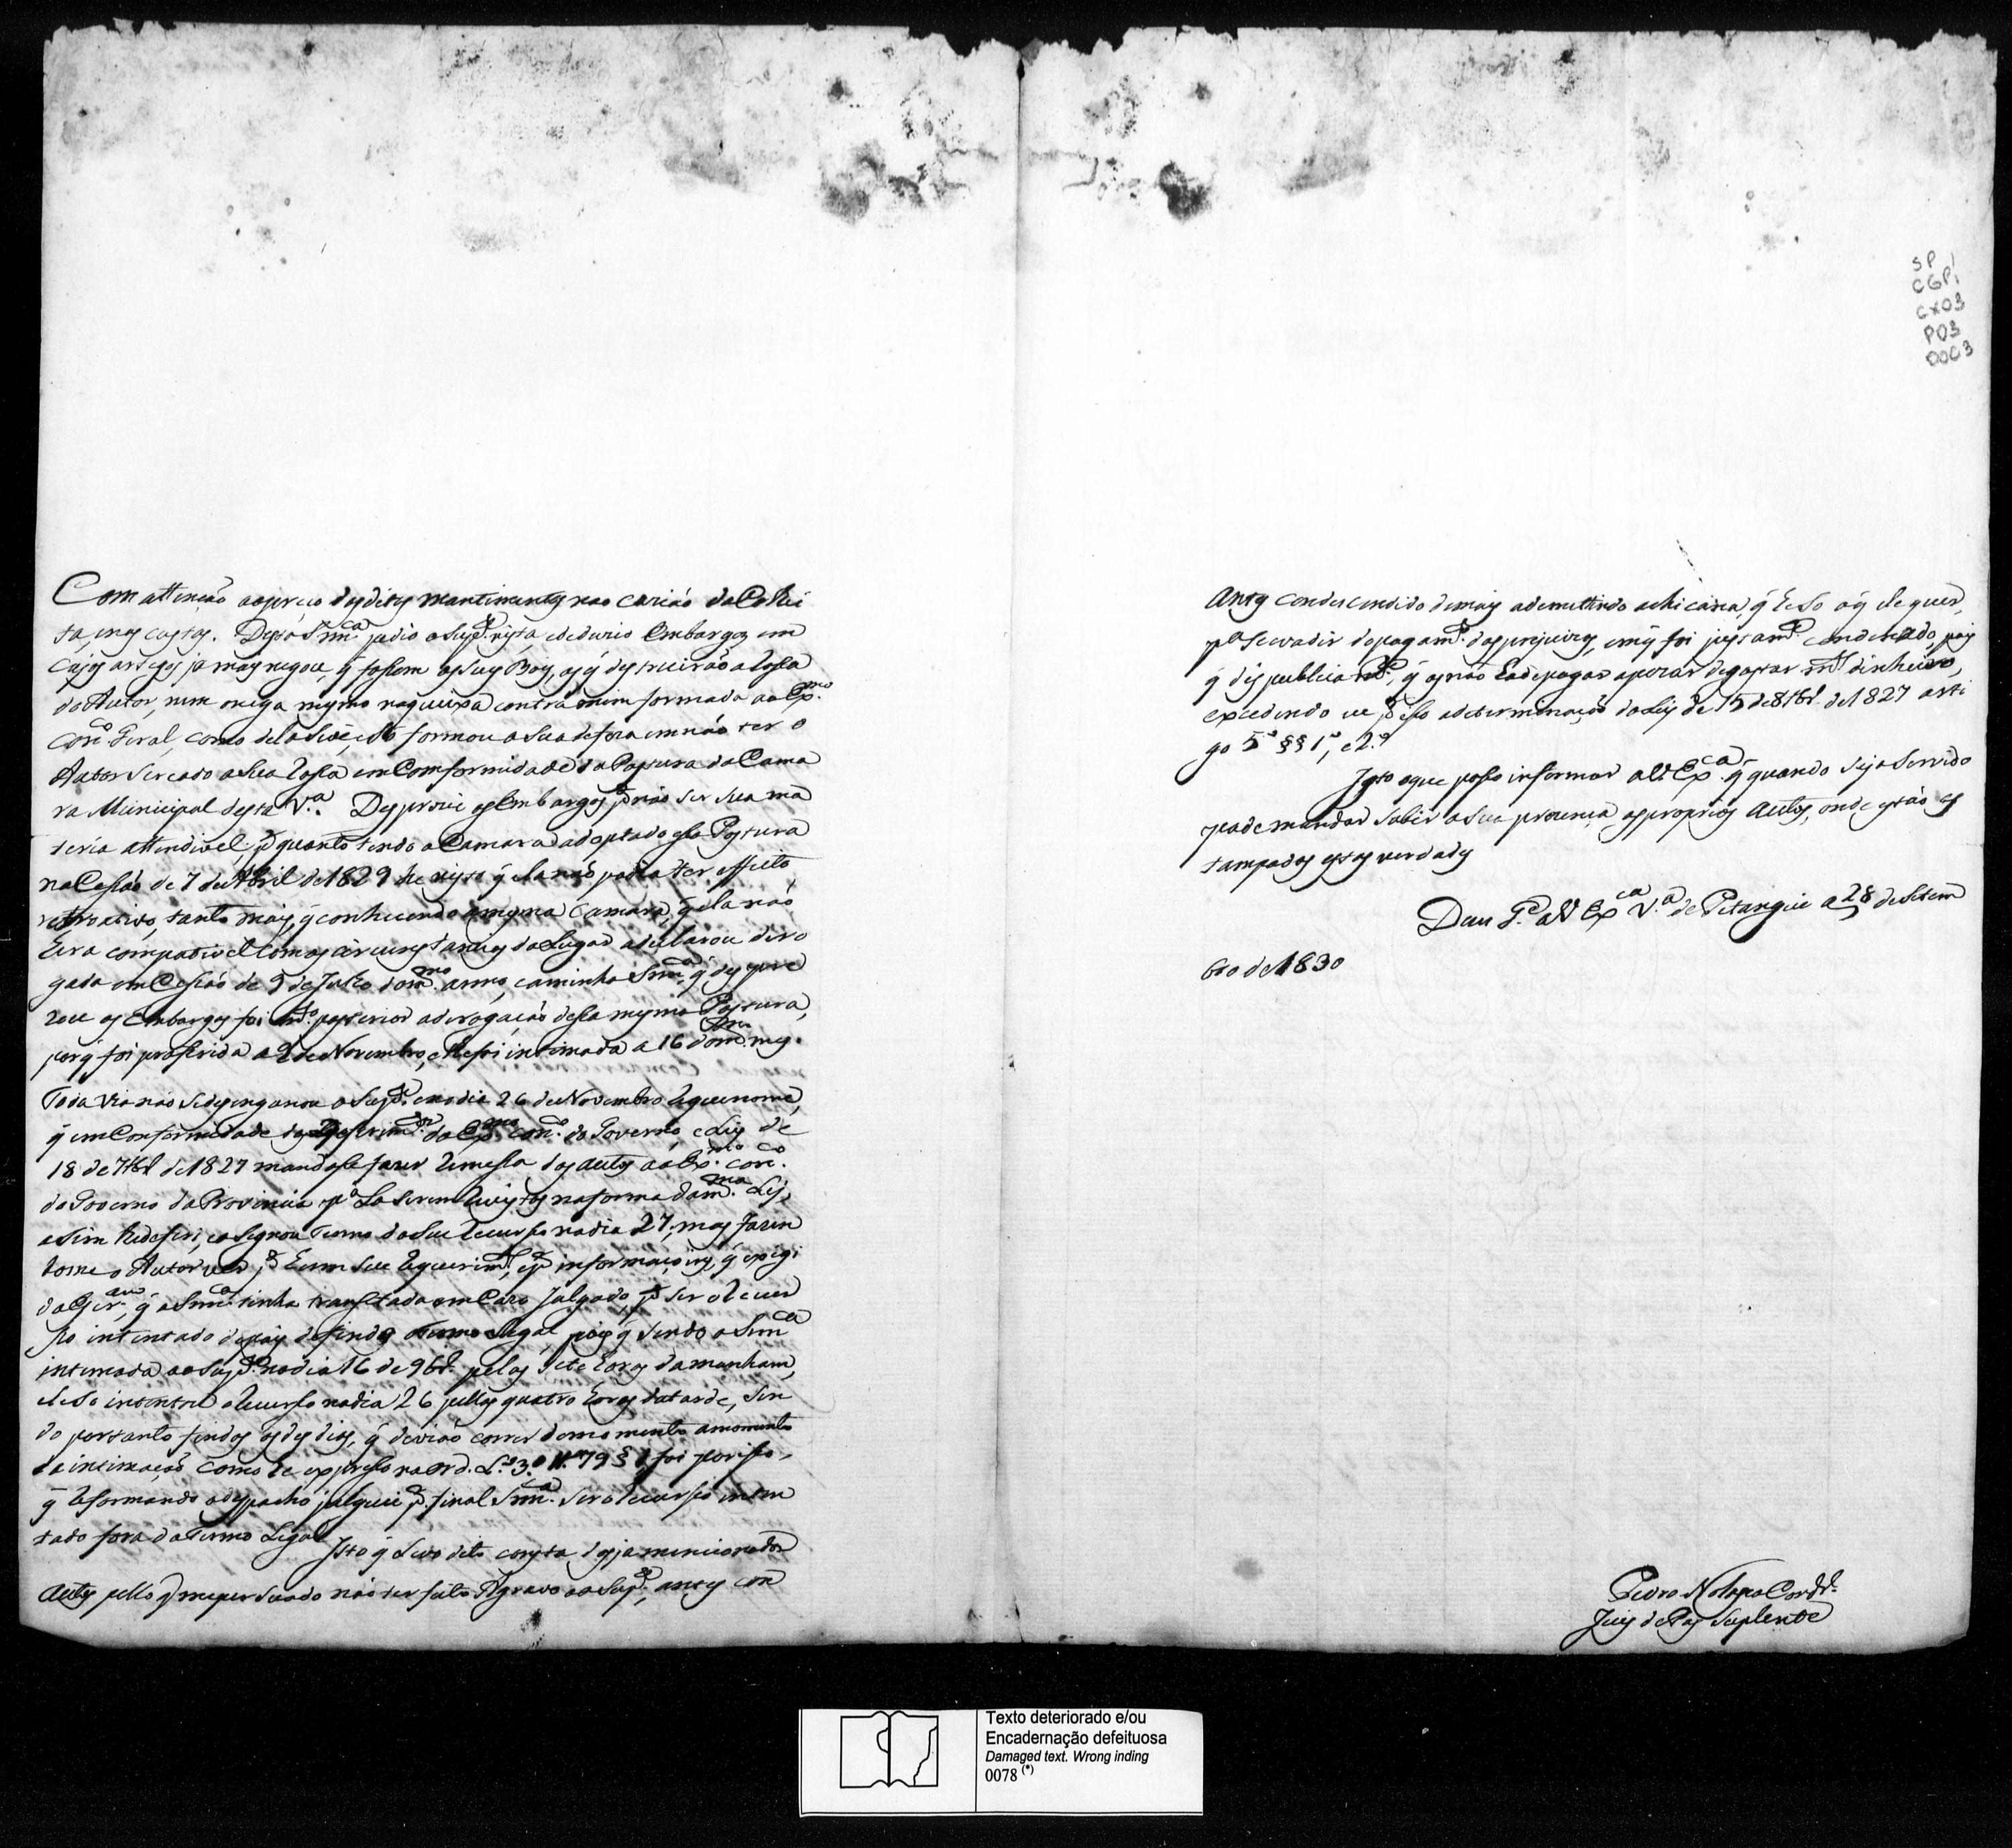 Com attenção ao preço dos ditos mantimentos na o cazião da Colhei
ta, e nas custas. Desta Snn.ça pedio o Sup.e vista, e deduzio Embargos em
cujos artigos ja mais negou, q̃ fossem os seus Boys, os q̃ destruirão a Rossa
do Autor, nem nega mesmo na queixa contra mim formada ao Ex.mo
Con.o Geral, como dela se vê, e só formou a sua defeza em não ter o
Autor sercado a sua Rossa em Comformidade da Postura da Cama
ra Municipal desta V.a. Desprovi os Embargos p.r não ser sua ma
teria attendivel, p.r quanto tendo a Camara adoptado essa Postura
na Cessão de 7 de Abril de 1829 he visto q̃ ela não podia ter effeito
retroativo, tanto mais, q̃ conhecendo a mesma Camara, q̃ ela não
hera compativel com as circunstancias do Lugar a declarou dero
gada em Cessão de 9 de Julho do m.mo anno, e a minha Snn.ça q̃ despre
zou os Embargos foi m.to posterior a derogação dessa mesma Postura,
porq̃ foi proferida a 9 de Novembro, e lhe foi intimada a 16 do m.mo mes.
Toda via não se dezenganou o Sup.e e no dia 26 de Novembro requereo me,
q̃ em Conformidade do Deferim.to do Ex.mo Con.o do Governo, e Ley de
18 de 7br.o de 1827 mandasse fazer remessa dos autos ao Ex.mo Con.o
do Governo da Provincia p.a Lá serem revistos na forma da m.ma Ley,
assim lhe deferi, e assignou Termo do seu recurso no dia 27, mas fazen
do me o Autor ver p.r hum seu requerim.to, e p.r informações, q̃ exegi
do Escr.am, q̃ a Snn.ça tinha tranzitado em Cazo Julgado, p.r ser o recur
so intentado depois de findo o Termo Legal, pois q̃ sendo a Snn.ça
intimada ao Sup.e no dia 16 de 9br.o pelas sete horas da manham,
ele só intentou o recurso no dia 26 pellas quatro horas da tarde, sen
do portanto findos os des dias, q̃ devião correr de momento a momento
da intimação como he expresso na Ord. L.o 3.o tt.o 79 § 1 foi por isso,
q̃ reformando o despacho julguei p.r final Snn.ça ser o recurso inten
tado fora do Termo Legal
Isto q̃ levo dito consta dos ja mencionados
Autos pello q̃ me persuado não ter feito Agravo ao Sup.e, antes con
Antes condescendido demais ademettindo a chicana q̃ he só o q̃ ele quer,
p.a se evadir do pagam.to dos prejuizos, em q̃ foi justam.te condenado, pois
q̃ dis publicam.te, q̃ os não ha de pagar apezar de gastar m.to dinheiro,
excedendo ce p.r isso a determinação da Ley de 15 de 8tbr.o de 1827 arti
go 5.o §§ 1.o, e 2.o
Isto o que posso informar a V Ex.ca q̃ quando seja servido
pode mandar subir a sua prezença os proprios Autos, onde estão es
tampadas estas verdades
Deus G.e a V Ex.ca V.a de Pitangui a 28 de Setem
bro de 1830
Juis de Pas Suplente
SP
CGP1
CX03
P03
DOC3
Texto deteriorado e/ou
Encadernação defeituosa
Damaged text. Wrong inding
0078 (*)